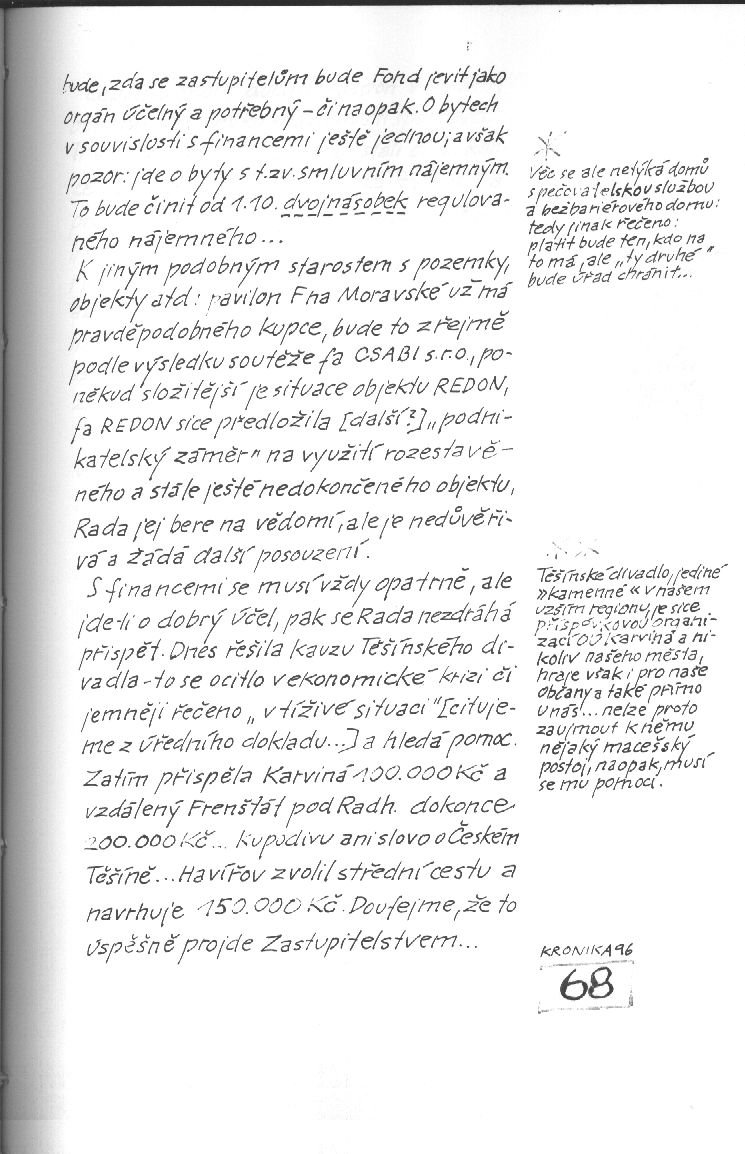 bude, zda se zastupitelům bude Fond jevit jako
orgán účelný a potřebný – či naopak. O bytech
v souvislosti s financemi ještě jednou, avšak
pozor: jde o byty s t.zv. smluvním nájemným.
To bude činit od 1.10. dvojnásobek regulova-
ného nájemného...
K jiným podobným starostem s pozemky,
objekty atd.: pavilon Fna Moravské už má
pravděpodobného kupce, bude to zřejmě
podle výsledku soutěže fa CSABI s.r.o., po-
někud složitější je situace objektu REDON,
fa REDON sice předložila [další?] „podni-
katelský záměr" na využití rozestavě-
ného a stále ještě nedokončeného objektu,
Rada jej bere na vědomí, ale je nedůvěři-
vá a žádá další posouzení.
S financemi se musí vždy opatrně, ale
jde-li o dobrý účel, pak se Rada nezdráhá
přispět. Dnes řešila kauzu Těšínského di-
vadla - to se ocitlo v ekonomické krizi či
jemněji řečeno „v tíživé situaci" [cituje-
me z úředního dokladu...] a hledá pomoc.
Zatím přispěla Karviná 100.000 Kč a
vzdálený Frenštát pod Radh. dokonce
200.000 Kč... kupodivu ani slovo o Českém
Těšíně... Havířov zvolil střední cestu a
navrhuje 150.000 Kč. Doufejme, že to
úspěšně projde Zastupitelstvem...
Věc se ale netýká domů
s pečovatelskou službou
a bezbariérového domu:
tedy jinak řečeno:
platit bude ten, kdo na
to má, ale „ty druhé"
bude úřad chránit...
Těšínské divadlo, jediné
»kamenné« v našem
užším regionu, je sice
příspěvkovou organi-
zací OÚ Karviná a ni-
koliv našeho města,
hraje však i pro naše
občany a také přímo
u nás... nelze proto
zaujmout k němu
nějaký macešský
postoj, naopak, musí
se mu pomoci.
KRONIKA 96
68